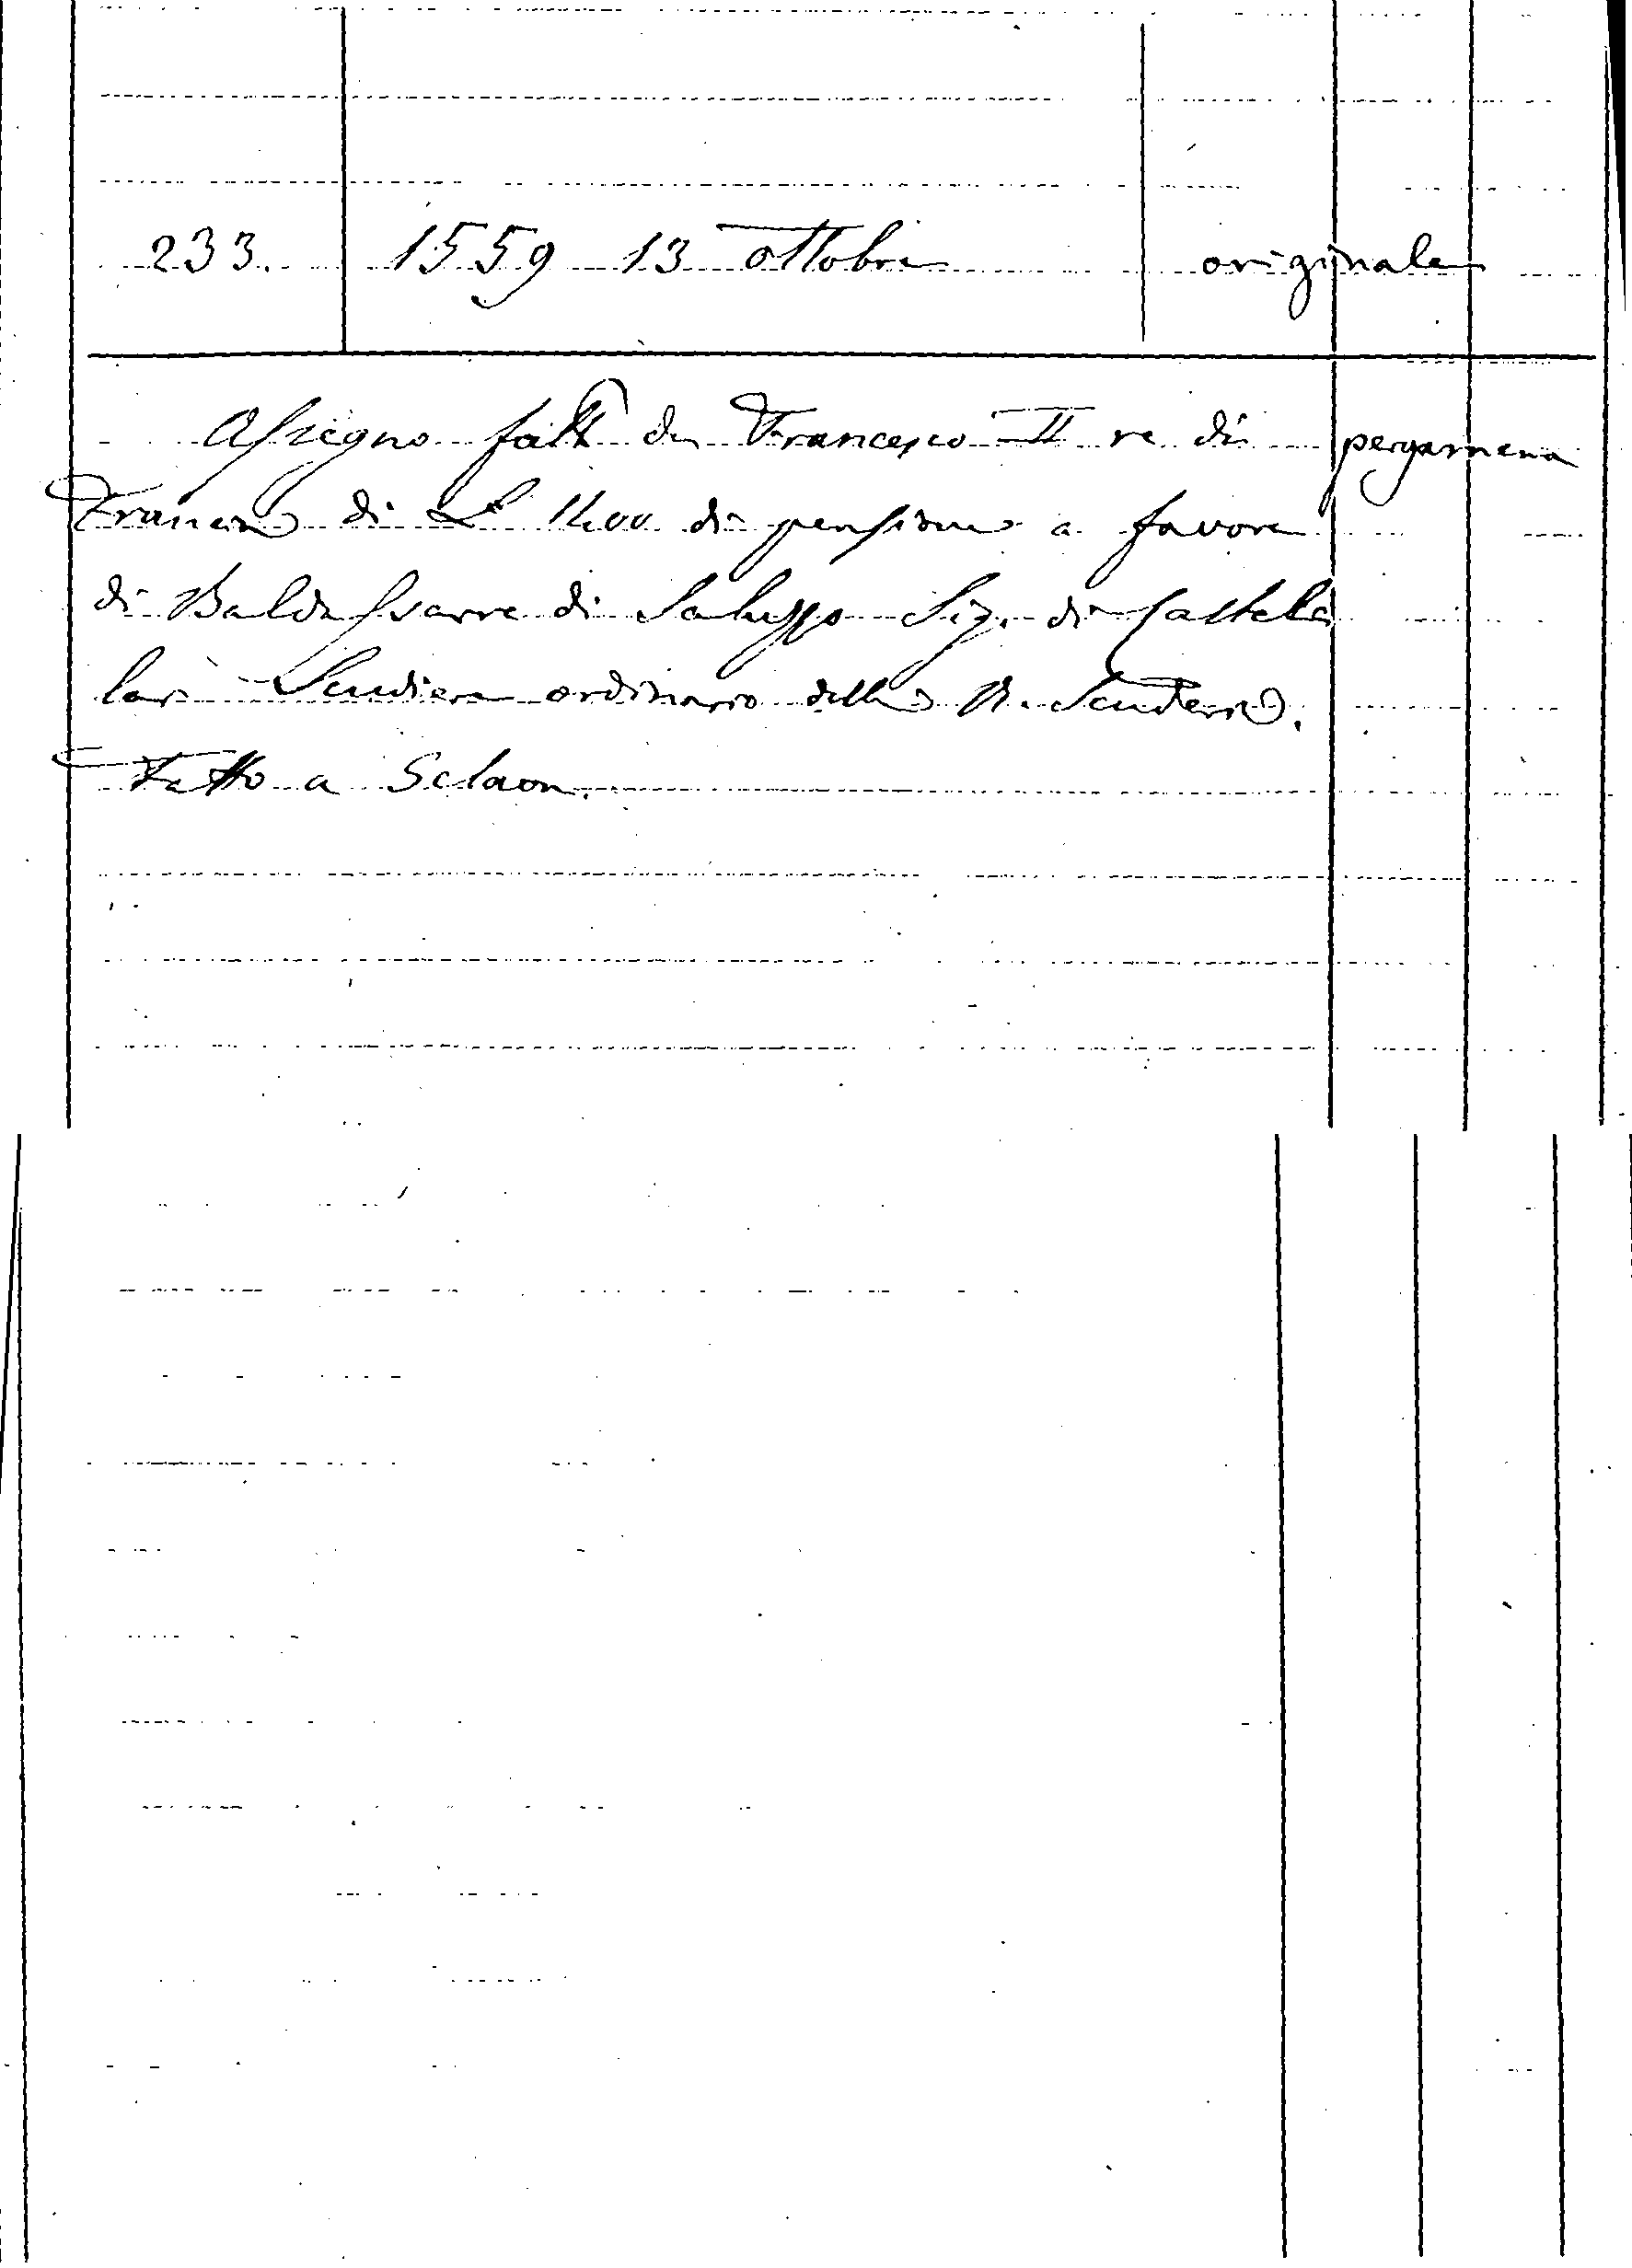 233. 1559 13 ottobre originale
Assegno fatto da Francesco II re di pergamena
Francia di L 1200 di pensione a favore
di Baldassarre di Saluzzo Sig. di Castel
lar Scudiere ordinario della R. Scuderia.
Fatto a Sclaon.